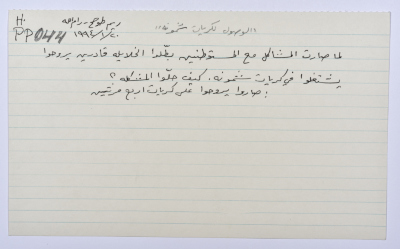 H.
PP044
ريم طوطح - رام الله
١٩٩٤/١/٢٠
"الوصول لكريات شمونة"
لما صارت المشاكل مع المستوطنين بطّلوا الخلايلة قادرين يروحوا
يشتغلوا في كريات شمونة. كيف حلّوا المشكلة؟
: صاروا يروحوا على كريات اربع مرتين